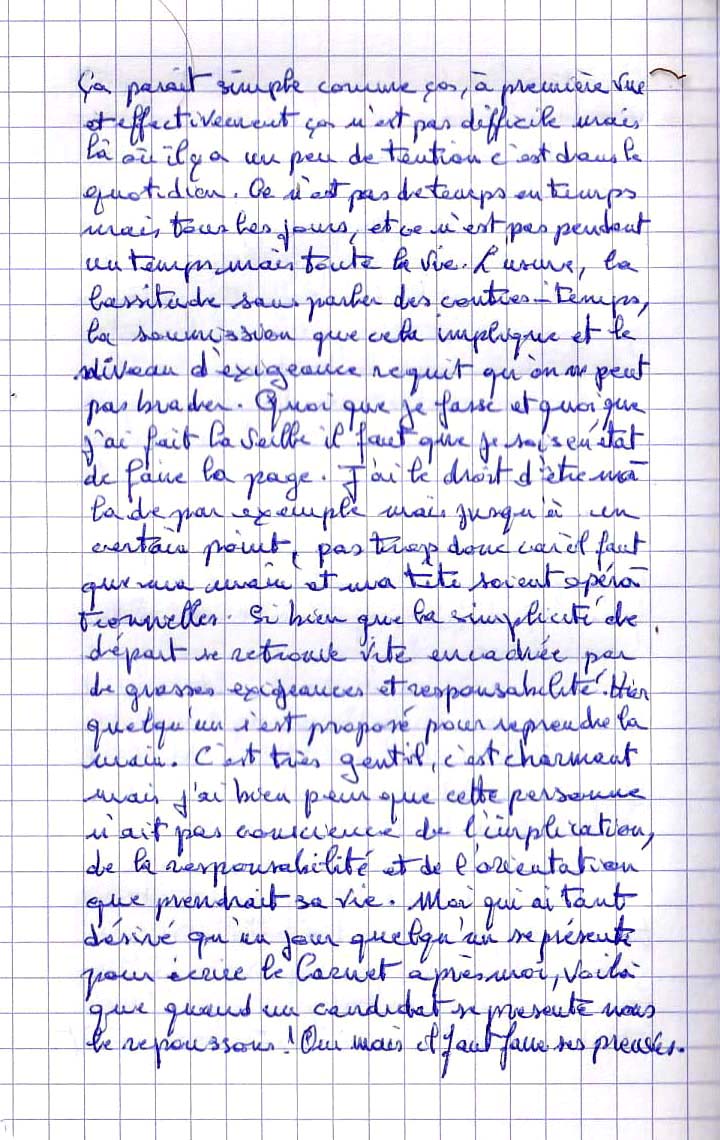 Ça parait simple comme ça, à première vue
et effectivement ça n'est pas difficile mais
là où il y a un peu de tention c'est dans le
quotidien. Ce n'est pas de temps en temps
mais tous les jours, et ce n'est pas pendant
un temps mais toute la vie. L'usure, la
lassitude sans parler des contres-temps,
la soumission que cela implique et le
niveau d'exigeance requit qu'on ne peut
pas brader. Quoi que je fasse et quoi que
j'ai fait la veille il faut que je sois en état
de faire la page. J'ai le droit d'être ma
lade par exemple mais jusqu'à un
certain point, pas trop donc car il faut
que ma main et ma tête soient opéra
tionnelles. Si bien que la simplicité de
départ se retrouve vite encadrée par
de grosses exigeances et responsabilité. Hier
quelqu'un s'est proposé pour reprendre la
main. C'est très gentil, c'est charmant
mais j'ai bien peur que cette personne
n'ait pas conscience de l'implication,
de la responsabilité et de l'orientation
que prendrait sa vie. Moi qui ai tant
désiré qu'un jour quelqu'un se présente
pour écrire le Carnet après moi, voilà
que quand un candidat se présente nous
le repoussons! Oui mais il faut faire ses preuves.